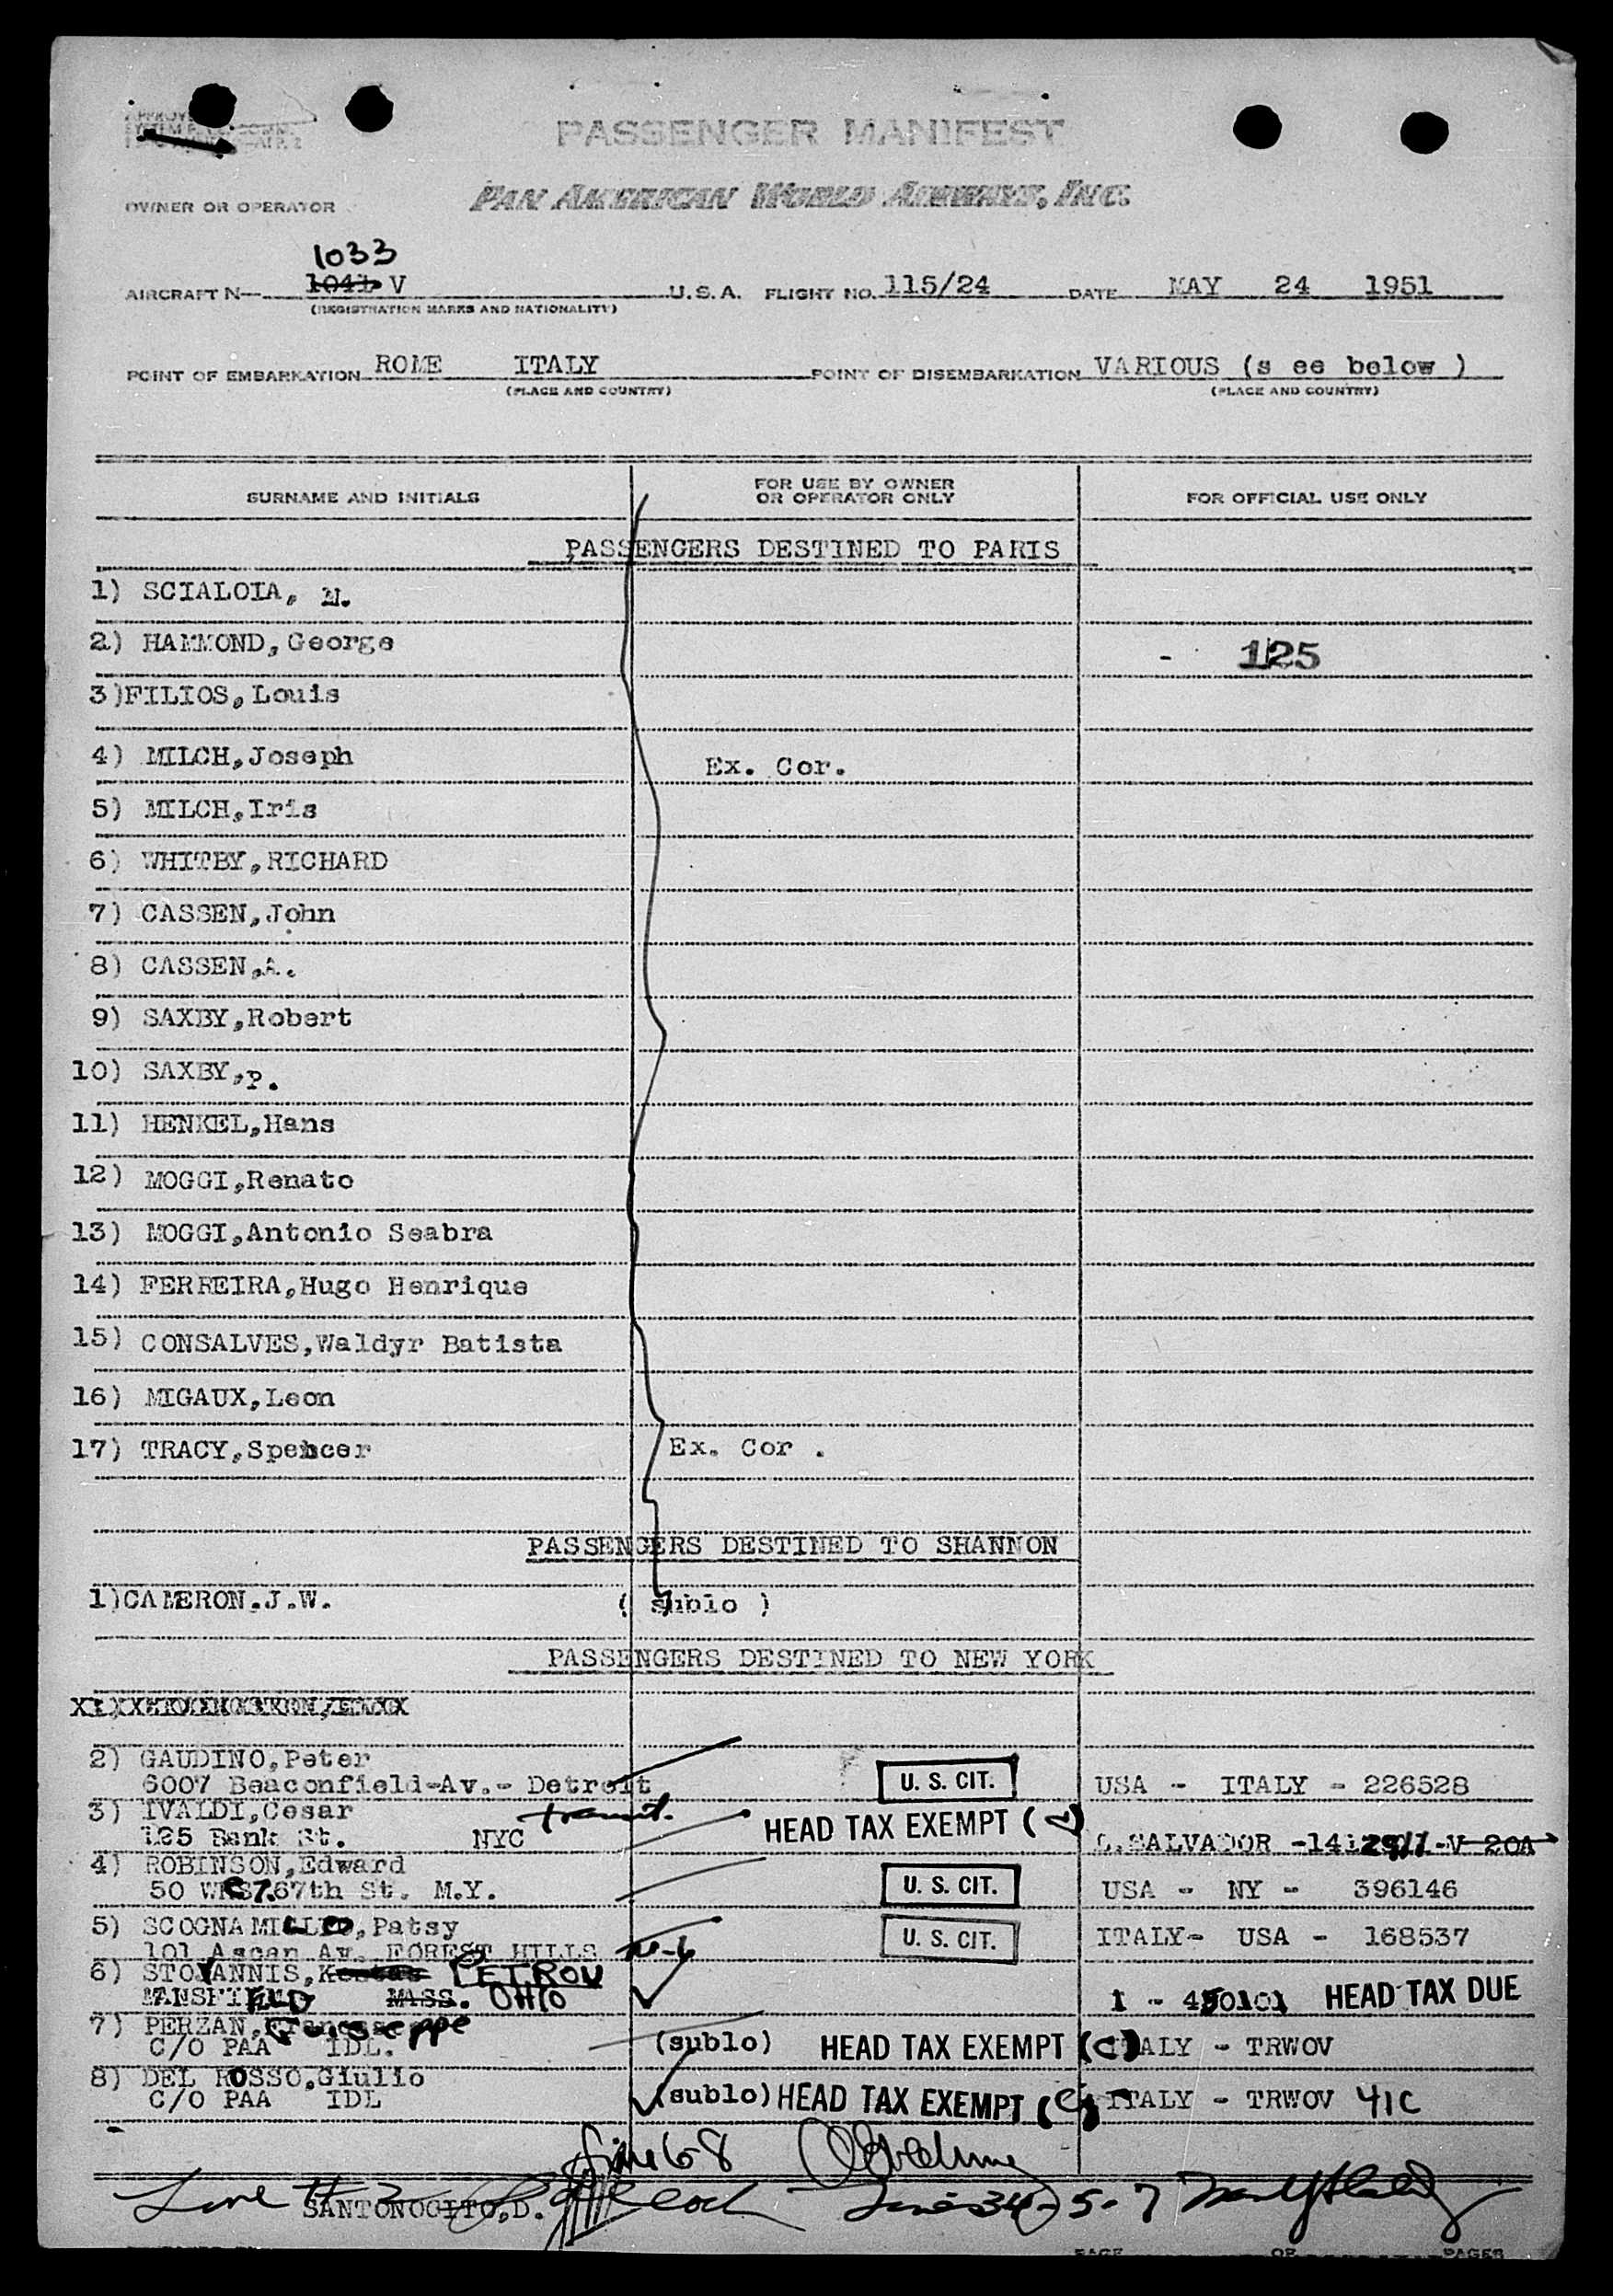 PASSENGER MANIFEST
OWNER OR OPERATOR PAN AMERICAN WORLD AIRWAYS, INC.
1033
AIRCRAFT N— 1041 V U.S.A. FLIGHT NO. 115/24 DATE MAY 24 1951
(REGISTRATION MARKS AND NATIONALITY)
POINT OF EMBARKATION ROME ITALY POINT OF DISEMBARKATION VARIOUS (s ee below )
(PLACE AND COUNTRY) (PLACE AND COUNTRY)
SURNAME AND INITIALS FOR USE BY OWNER OR OPERATOR ONLY FOR OFFICIAL USE ONLY
PASSENGERS DESTINED TO PARIS
1) SCIALOIA,
2) HAMMOND,George - 125
3)FILIOS,Louis
4) MILCH,Joseph Ex. Cor.
5) MILCH,Iris
6) WHITBY,RICHARD
7) CASSEN,John
8) CASSEN,A.
9) SAXBY,Robert
10) SAXBY,P.
11) HENKEL,Hans
12) MOGGI,Renato
13) MOGGI,Antonio Seabra
14) FERREIRA,Hugo Henrique
15) CONSALVES,Waldyr Batista
16) MIGAUX,Leon
17) TRACY,Spencer Ex. Cor .
PASSENGERS DESTINED TO SHANNON
1)CAMERON.J.W. ( sublo )
PASSENGERS DESTINED TO NEW YORK
2) GAUDINO,Peter
6007 Beaconfield-Av.- Detroit U. S. CIT. USA - ITALY - 226528
3) IVALDI,Cesar transit. HEAD TAX EXEMPT
125 Bank St. NYC S.SALVADOR
4) ROBINSON,Edward
50 67th St. M.Y. U. S. CIT. USA - NY - 396146
5) SCOGNAMIGLIO,Patsy U. S. CIT. ITALY- USA - 168537
101 Ascan Av. FOREST HILLS
6) STOYANNIS, PETROU
MANSFIELD MASS. OHIO HEAD TAX DUE
7) PERZAN, Guiseppe
C/O PAA IDL. (sublo) HEAD TAX EXEMPT (C) ITALY - TRWOV
8) DEL ROSSO,Giulio
C/O PAA IDL (sublo) HEAD TAX EXEMPT (C) ITALY - TRWOV 41C
Line 6-8
SANTONOCITO,D.
PAGE OF PAGES